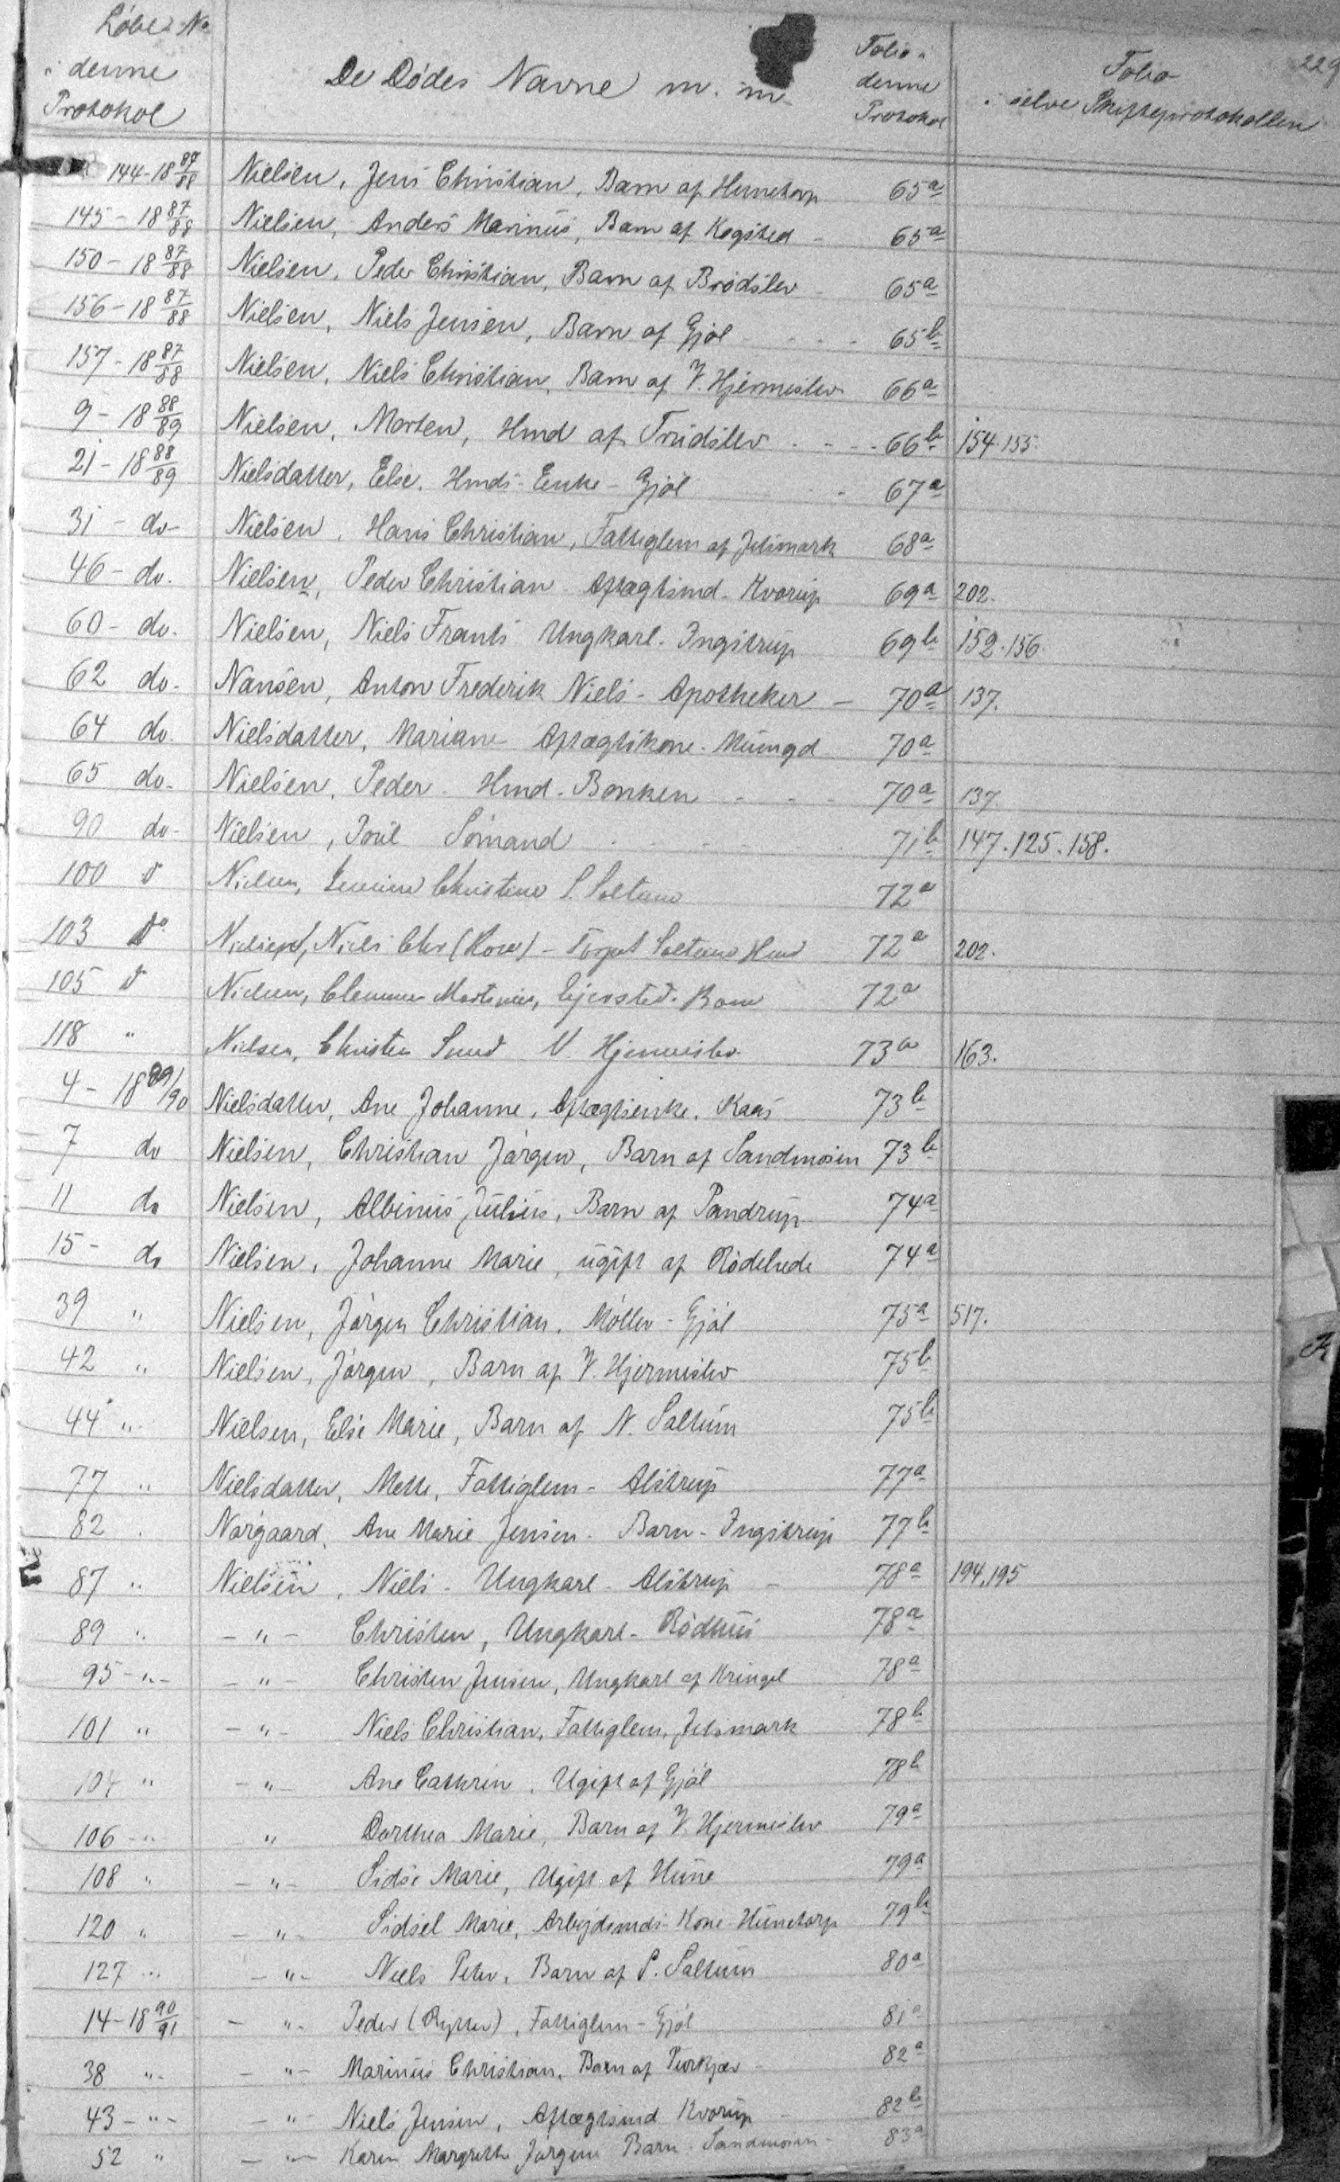 229
Løbe No i denne Protokol | De Dødes Navne m. m. | Folio i denne Protokol | Folio i selve Skifteprotokollen
144-18 87/88 Nielsen, Jens Christian, Barn af Hunetorp 65a
145-18 87/88 Nielsen, Anders Marinus, Barn af Kogsted 65a
150-18 87/88 Nielsen, Peder Christian, Barn af Brødslev 65a
156-18 87/88 Nielsen, Niels Jensen, Barn af Gjøl 65b
157-18 87/88 Nielsen, Niels Christian, Barn af V. Hjermeslev 66a
9-18 88/89 Nielsen, Morten, Hmd af Trudslev 66b 154.155.
21-18 88/89 Nielsdatter, Else, Hmds-Enke-Gjøl 67a
31-do- Nielsen, Hans Christian, Fattiglem af Jetsmark 68a
46-do. Nielsen, Peder Christian Aftægtsmd-Kvorup 69a 202.
60-do. Nielsen, Niels Frants Ungkarl-Ingstrup 69b 152.156.
62 do. Nansen, Anton Frederik Niels-Apotheker - 70a 137.
64 do. Nielsdatter, Mariane Aftægtskone 70a
65 do. Nielsen, Peder-Hmd-Bonken 70a 137.
90 do- Nielsen, Poul Sømand 71b 147.125.158.
100 d Nielsen, Christine S. Saltum 72a
103 do Niels Chr Saltum Hmd 72a 202.
105 d Nielsen, Martinus, Ejersted. Barn 72a
118 " Nielsen, Christen Smed V Hjermeslev 73a 163.
4-18 89/90 Nielsdatter, Ane Johanne, Aftægtsenke. Kaas 73b
7 do Nielsen, Christian Jørgen, Barn af Sandmosen 73b
11 do Nielsen, Albinus Julius, Barn af Pandrup 74a
15-do Nielsen, Johanne Marie, ugift af Rødehede 74a
39 " Nielsen, Jørgen Christian, Møller-Gjøl 75a 517.
42 " Nielsen, Jørgen, Barn af V. Hjermeslev 75b
44 " Nielsen, Else Marie, Barn af N. Saltum 75b
77 " Nielsdatter, Mette, Fattiglem-Alstrup 77a
82 . Nørgaard, Ane Marie Jensen-Barn-Ingstrup 77b
87 " Nielsen, Niels-Ungkarl-Alstrup 78a 194.195
89 " -"- Christen, Ungkarl-Rødhus 78a
95-"- -"- Christen Jensen, Ungkarl af Kringel 78a
101 " -"- Niels Christian, Fattiglem, Jetsmark 78b
104 " -"- Ane Cathrin, Ugift af Gjøl 78b
106-" " Dorthea Marie, Barn af V Hjermeslev 79a
108 " -"- Sidse Marie, Ugift af Hune 79a
120 " -"- Sidsel Marie, Arbejdsmds-Kone-Hunetorp 79b
127 " -"- Niels Peter, Barn af S. Saltum 80a
14-18 90/91 -"- Peder (Rytter), Fattiglem-Gjøl 81a
38 " -"- Marinus Christian, Barn af Purkjær 82a
43-"- -"- Niels Jensen, Aftægtsmd Kvorup 82b
52 " -"- Karen Margrethe Jørgine Barn-Sandmosen 83a